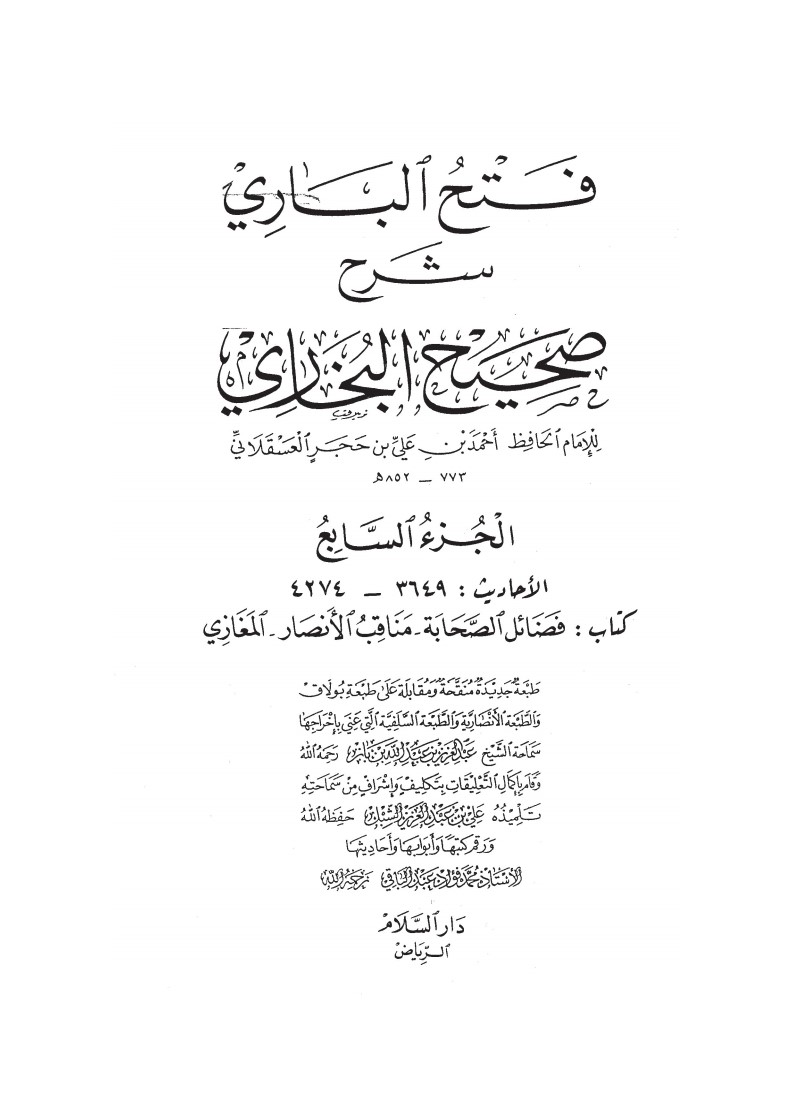 فَتْحُ ٱلبَارِي
شرح
صَحِيحِ البُخَارِي
لِلإِمَامِ ٱلحَافِظِ أَحْمَدَ بْنِ عَلِيِّ بْنِ حَجَرٍ ٱلْعَسْقَلَانِيِّ
٧٧٣ – ٨٥٢ هـ
الْجُزءُ ٱلسَّابِعُ
الأحاديث : ٣٦٤٩ – ٤٢٧٤
كتاب : فَضَائل ٱلصَّحَابَة - مَنَاقِبُ ٱلأَنصَار - ٱلمَغَازِي
طَبْعَةٌ جَدِيْدَةٌ مُنَقَّحَةٌ وَمُقَابَلَة عَلَى طَبْعَةِ بُولَاق
وَالطَّبْعَة الأَنْصَارِيَّة وَالطَّبْعَة السَّلَفِيَّة الَّتِي عُنِيَ بِإِخْرَاجِهَا
سَمَاحَة الشَّيْخ عَبْدُ العَزِيْزِ بن عَبْدِ اللَّهِ بْن بَاز رَحِمَهُ اللَّه
وَقَامَ بِإِكْمَالِ التَّعْلِيْقَاتِ بِتَكْلِيْفٍ وَإِشْرَافٍ مِنْ سَمَاحَتِهِ
تِلْمِيْذُهُ عَلِيّ بْنُ عَبْدِ العَزِيْزِ الشِّبْل حَفِظَهُ اللَّه
وَرَقَّم كُتُبَهَا وَأَبْوَابَهَا وَأَحَادِيْثَهَا
الأُسْتَاذ مُحَمَّد فُؤَاد عَبْد البَاقِي رَحِمَهُ اللَّه
دَار ٱلسَّلَام
ٱلـرِّيَاض